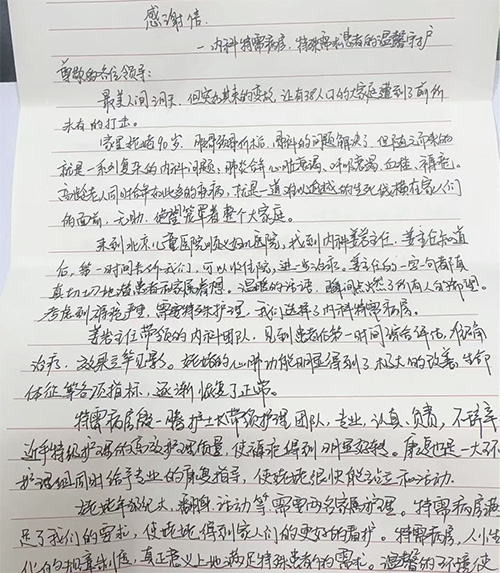 感谢信
—内科特需病房，特殊需求患者的温馨守护
尊敬的各位领导：
最美人间四月天，但突如其来的变故，让有30人口的大家庭遭到了前所
未有的打击。
家里姥姥90岁，
骨科的问题解决了，但随之而来的
就是一系列复杂的内科问题：肺炎合并心脏衰竭、呼吸衰竭、血栓、褥疮。
高龄老人同时合并如此多的疾病，就是一道难以逾越的生死线横在家人们
的面前，无助、绝望笼罩着整个大家庭。
来到北京儿童医院顺义妇儿医院，找到内科姜主任，姜主任知道
后，第一时间告诉我们，可以收住院，进一步治疗。姜主任的一字一句都真
真切切地替患者和家属着想。温暖的话语，瞬间点燃了所有人的希望。
考虑到褥疮严重，需要特殊护理，我们选择了内科特需病房。
姜主任带领的内科团队，见到患者后第一时间综合评估，
治疗，效果立竿见影。姥姥的心肺功能明显得到了极大的改善，生命
体征等各项指标，逐渐恢复了正常。
特需病房段 腾护士长带领护理团队，专业、认真、负责，不辞辛
近乎特级护理的高效护理质量，使褥疮得到明显好转。康复也是一大
护理组同时给予专业的康复指导，使姥姥很快能站立和活动。
姥姥年龄大，翻身、活动等需要两名家属护理。特需病房满
足了我们的需求，使姥姥得到家人们的更好的看护。特需病房，人性
化的规章制度，真正意义上地满足特殊患者的需求。温馨的环境使